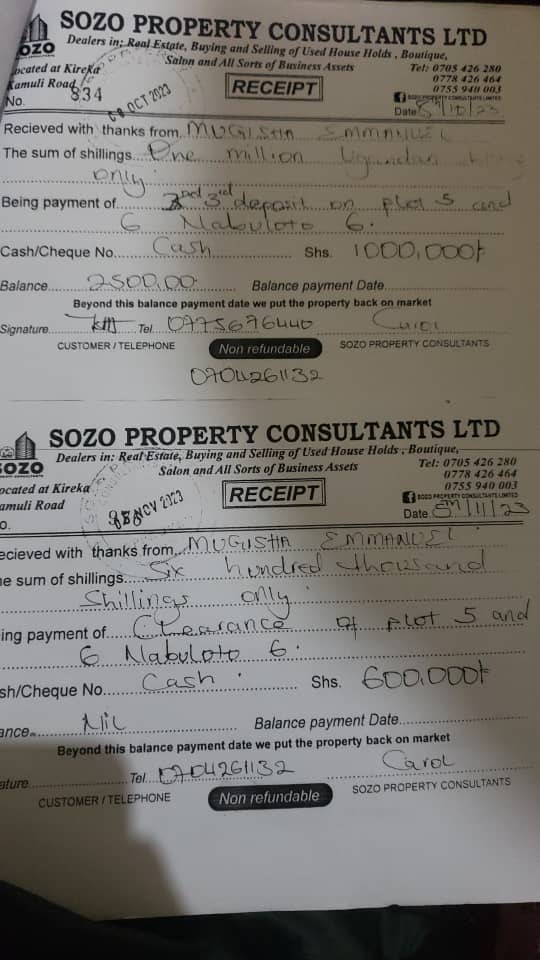 SOZO PROPERTY CONSULTANTS LTD
OZO
Dealers in; Real Estate, Buying and Selling of Used House Holds , Boutique,
Salon and All Sorts of Business Assets
ocated at Kireka
Kamuli Road
Tel: 0705 426 280
0778 426 464
0755 940 003
SOZO PROPERTY CONSULTANTS LIMITED
No. 834
OCT 2023
RECEIPT
Date /10/23
Recieved with thanks from. MUGISHA EMMANUEL
The sum of shillings. One million Ugandan
only
Being payment of 3rd deposit on plot 5 and
6 Nabuloto 6.
Cash/Cheque No. Cash Shs. 1000,000/
Balance 2500,00 Balance payment Date
Beyond this balance payment date we put the property back on market
Signature Tel 0775676440 Carol
CUSTOMER / TELEPHONE Non refundable SOZO PROPERTY CONSULTANTS
0704261132
SOZO PROPERTY CONSULTANTS LTD
SOZO
Dealers in; Real Estate, Buying and Selling of Used House Holds , Boutique,
Salon and All Sorts of Business Assets
ocated at Kireka
amuli Road
Tel: 0705 426 280
0778 426 464
0755 940 003
SOZO PROPERTY CONSULTANTS LIMITED
o.
NOV 2023
RECEIPT
Date /11/23
ecieved with thanks from MUGISHA EMMANUEL
e sum of shillings Six hundred thousand
Shillings only
ing payment of Clearance of plot 5 and
6 Nabuloto 6.
sh/Cheque No. Cash Shs. 600,000/
ance Nil Balance payment Date
Beyond this balance payment date we put the property back on market
ature Tel. 0704261132 Carol
CUSTOMER / TELEPHONE Non refundable SOZO PROPERTY CONSULTANTS